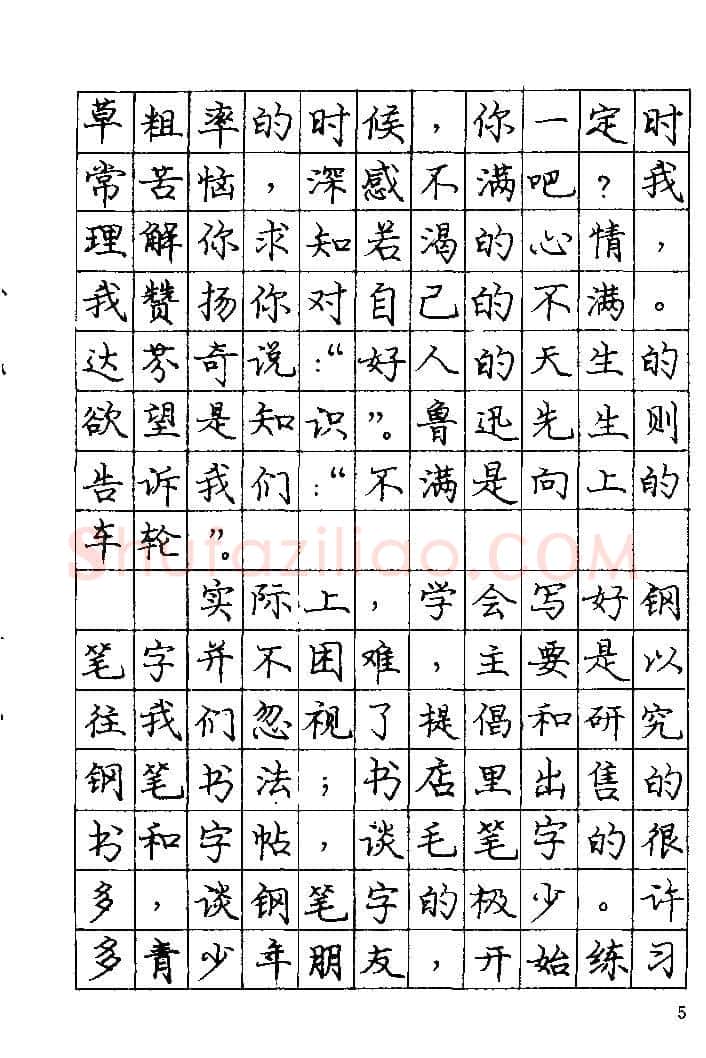 草粗率的时候，你一定时
常苦恼，深感不满吧？我
理解你求知若渴的心情，
我赞扬你对自己的不满。
达芬奇说：“好人的天生的
欲望是知识”。鲁迅先生则
告诉我们：“不满是向上的
车轮”。
Shufaziliao.COM
实际上，学会写好钢
笔字并不困难，主要是以
往我们忽视了提倡和研究
钢笔书法；书店里出售的
书和字帖，谈毛笔字的很
多，谈钢笔字的极少。许
多青少年朋友，开始练习
5